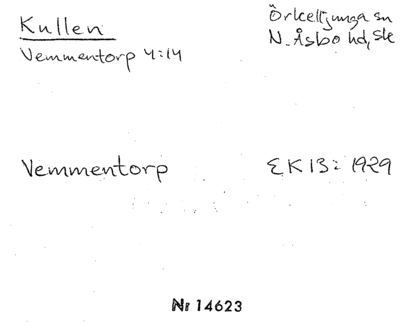 Kullen
Vemmentorp 4:14
Örkelljunga sn
N. Åsbo hd, Sk
Vemmentorp
EK 13: 1929
Nr 14623